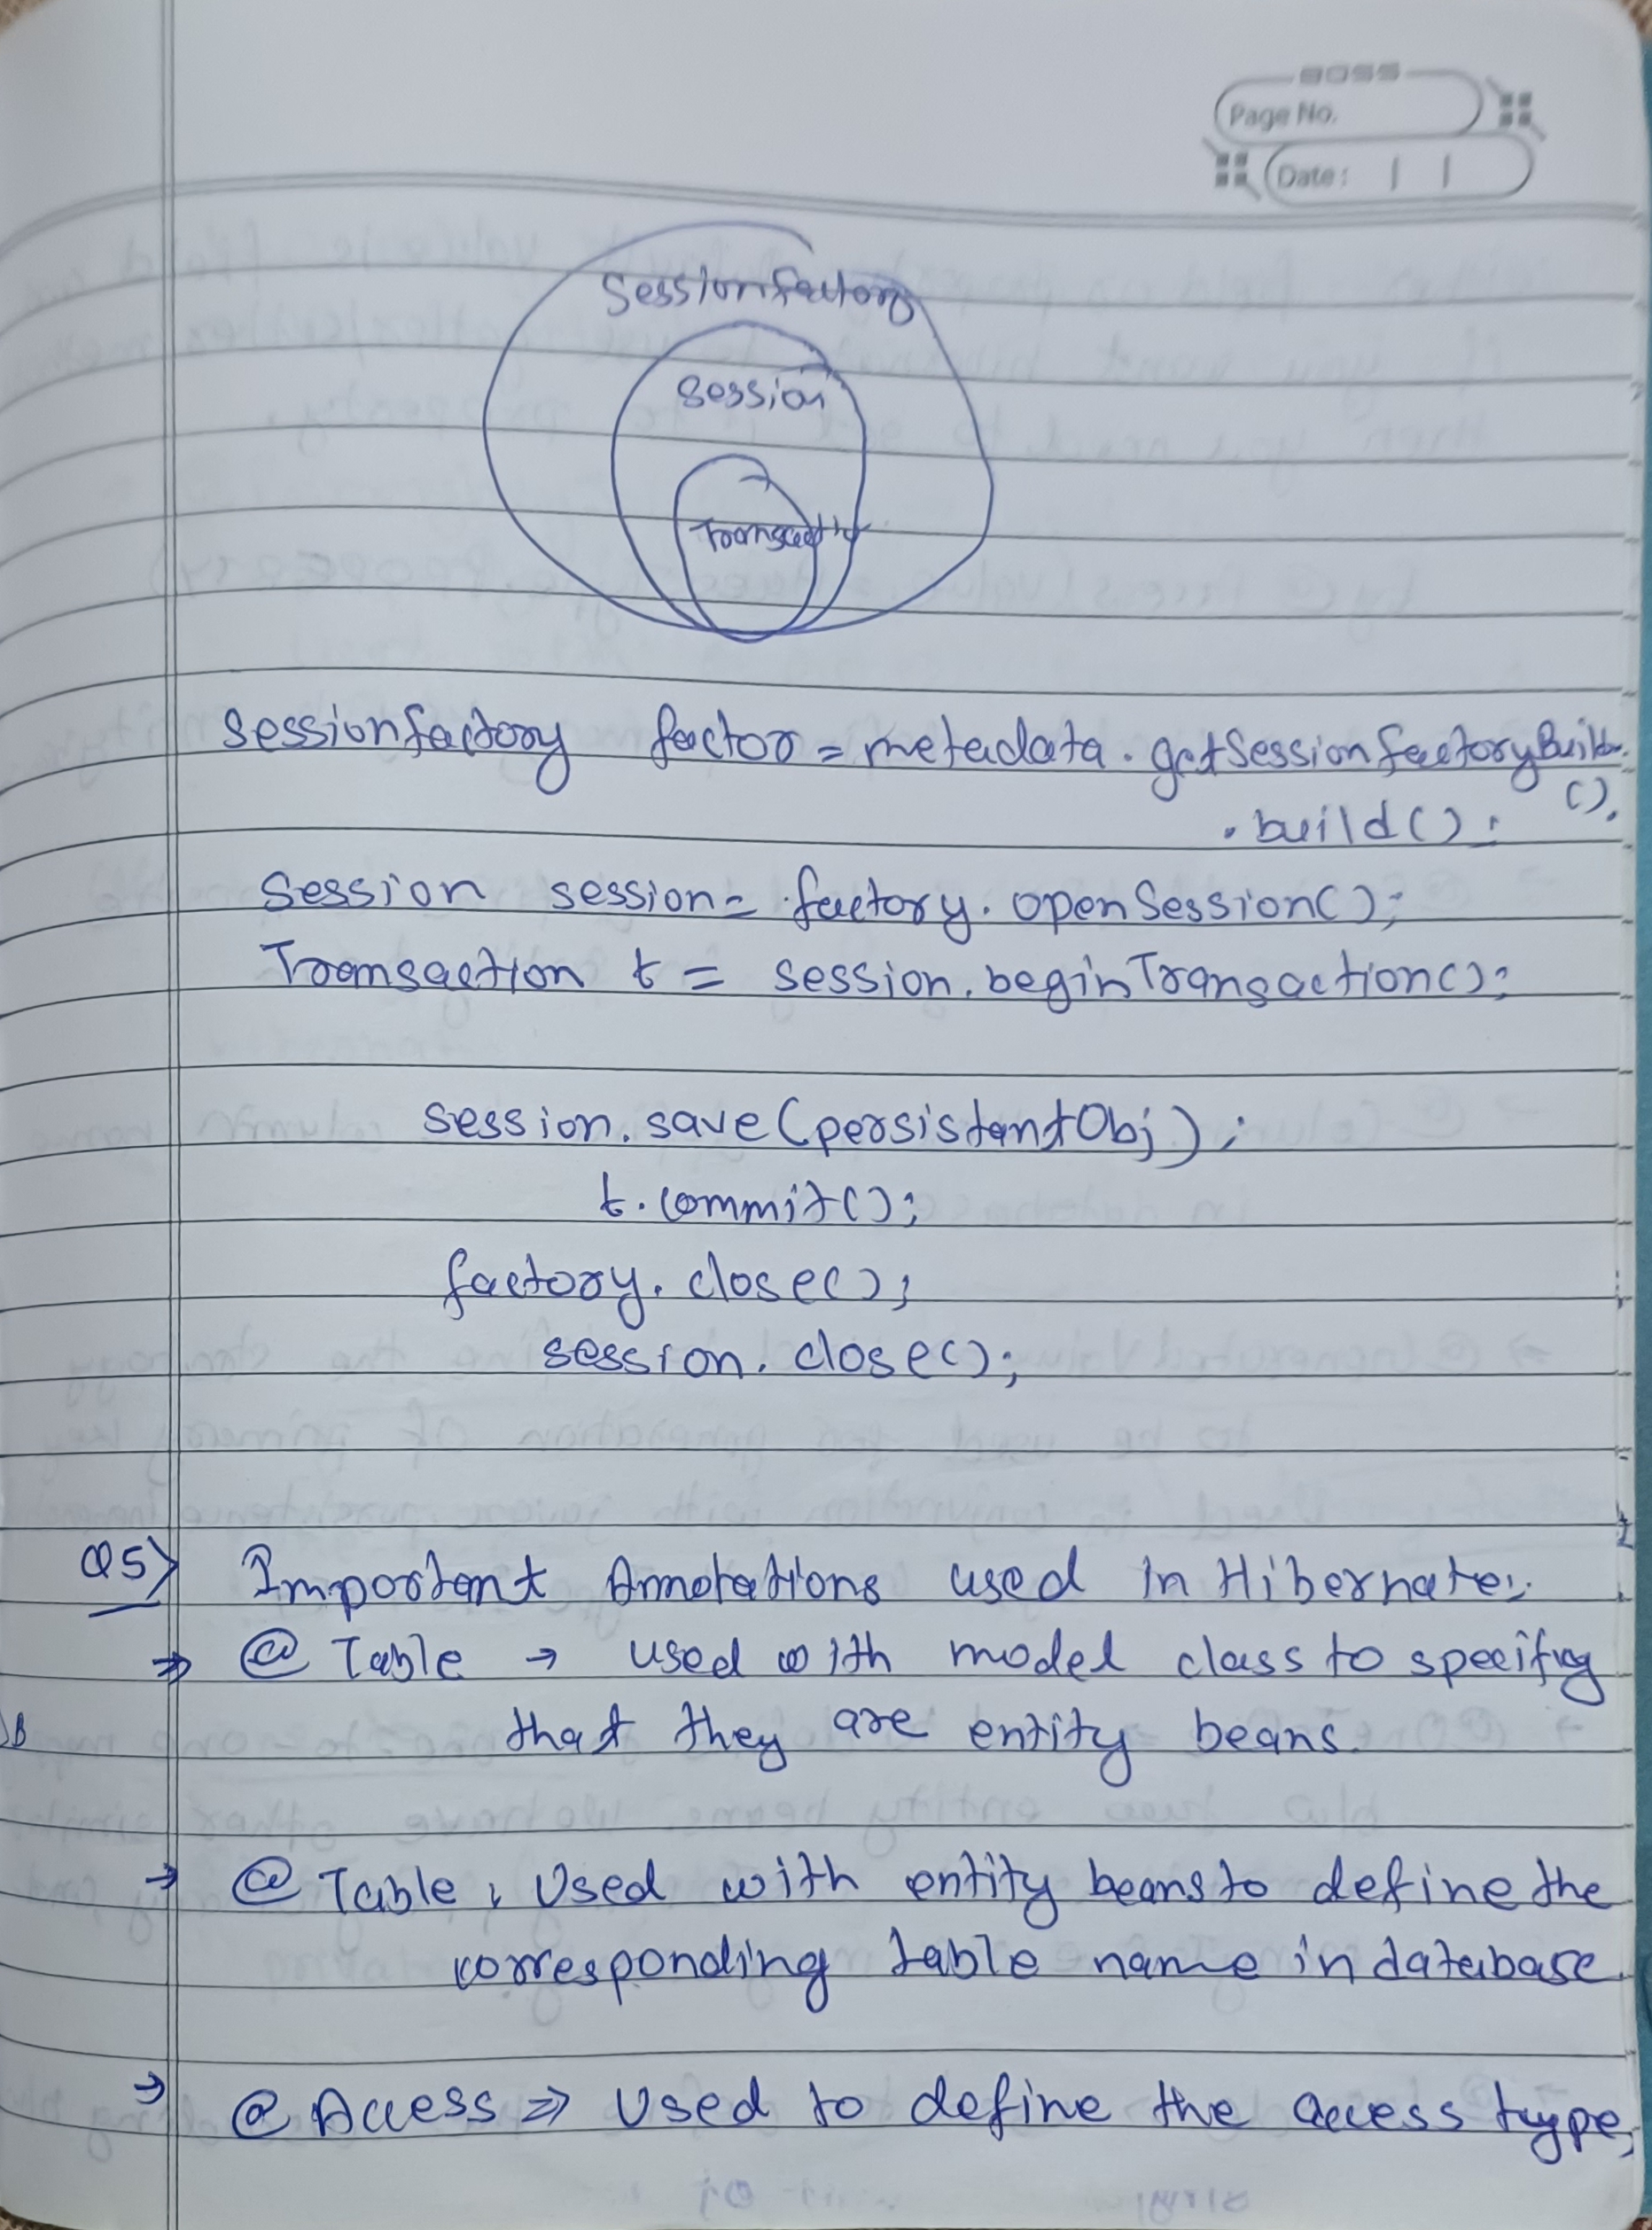 BOSS
Page No.
Date:
Sessionfactory
Session
Transaction
Sessionfactory factor = metadata.getSessionfactoryBuilder
().
.build();
Session session = factory.openSession();
Transaction t = session.beginTransaction();
session.save(persistantObj);
t.commit();
factory.close();
session.close();
Q5> Important Annotations used in Hibernate:
⇒ @Table → used with model class to specifiy
that they are entity beans.
→ @Table : Used with entity beans to define the
corresponding table name in database.
→ @Access ⇒ Used to define the access type,